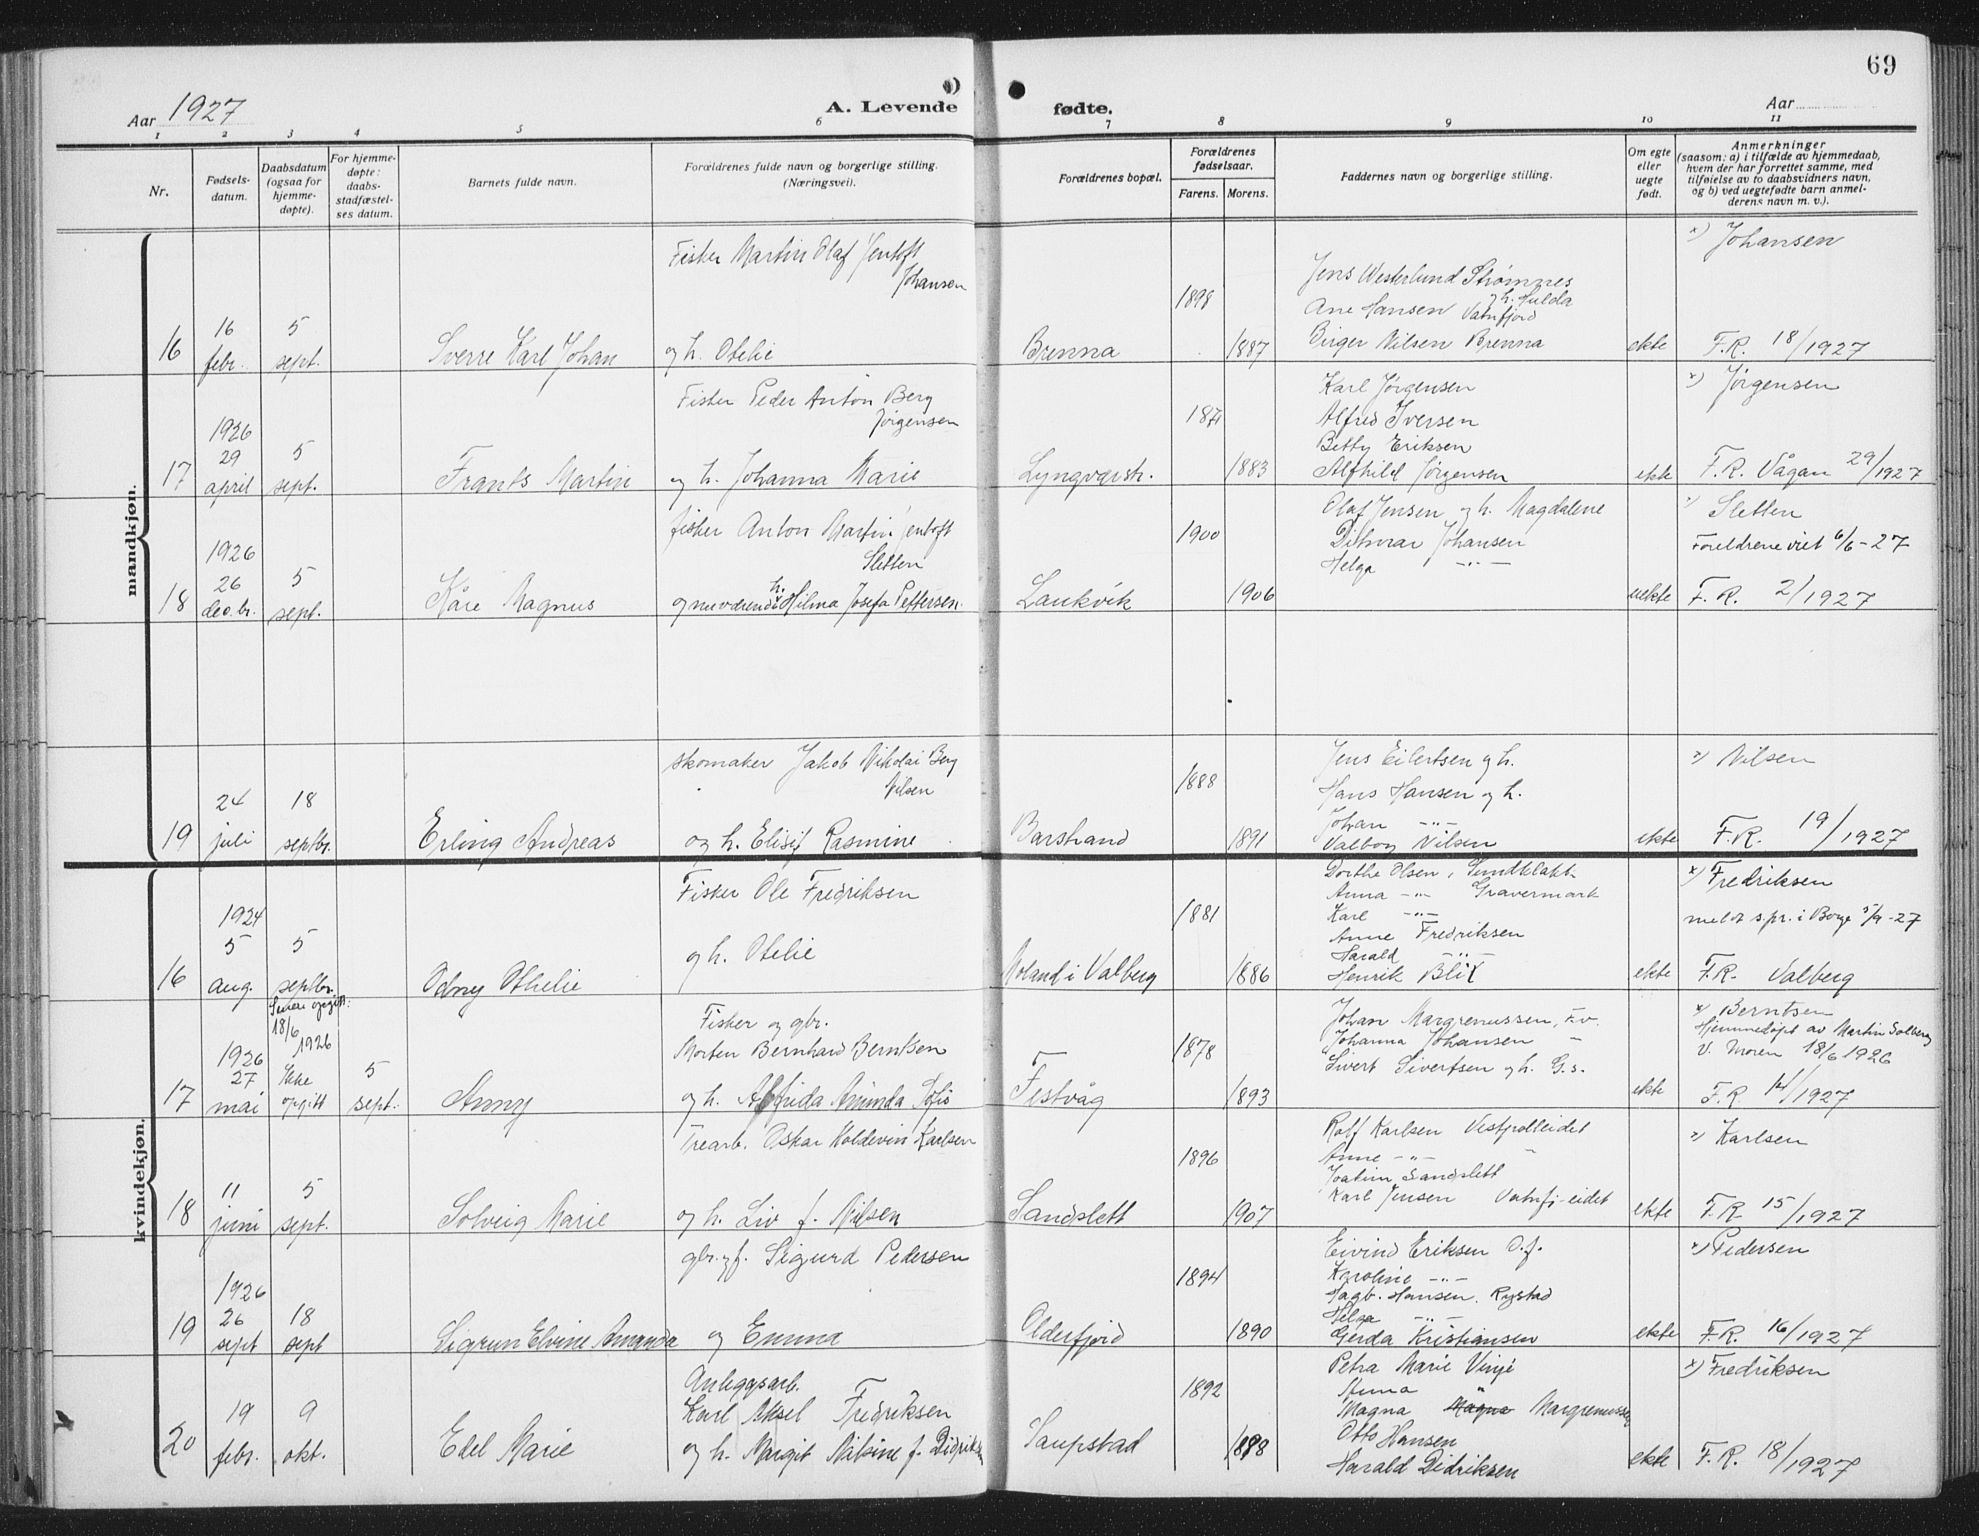 69
Aar 1927
A. Levende fødte.
Aar
1 2 3 4 5 6 7 8 9 10 11
Nr.
Fødsels-datum.
Daabsdatum (ogsaa for hjemme-døpte).
For hjemme-døpte: daabs-stadfæstel-ses datum.
Barnets fulde navn.
Forældrenes fulde navn og borgerlige stilling. (Næringsvei).
Forældrenes bopæl.
Forældrenes fødselsaar.
Farens. Morens.
Faddernes navn og borgerlige stilling.
Om egte eller uegte født.
Anmerkninger
(saasom: a) i tilfælde av hjemmedaab, hvem der har forrettet samme, med tilføielse av to daabsvidners navn, og b) ved uegtefødte barn anmel-derens navn m. v.).
mandkjøn.
16
16 febr.
5 sept.
Sverre Karl Johan
Fisker Martin Olaf Jentoft Johansen
og h. Otelie
Brenna
1898
1887
Jens Westerlund Strømnes
og h. Hulda
Ane Hansen Vatnfjord
Birger Nilsen Brenna
ekte
x) Johansen
F.R. 18/1927
17
1926
29 april
5 sept.
Frants Martin
Fisker Peder Anton Berg Jørgensen
og h. Johanna Marie
Lyngværstr.
1871
1883
Karl Jørgensen
Alfred Iversen
Betty Eriksen
Alfhild Jørgensen
ekte
x) Jørgensen
F.R. Vågan 29/1927
18
1926
26 dec.br.
5 sept.
Kåre Magnus
fisker Anton Martin Jentoft Sletten
og nuværende h. Hilma Josefa Pettersen.
Laukvik
1900
1906
Olaf Jensen og h. Magdalene
Ditmar Johansen
Helga -"-
uekte
x) Sletten
Foreldrene viet 6/6-27
F.R. 2/1927
19
24 juli
18 septbr.
Erling Andreas
skomaker Jakob Nikolai Berg Nilsen
og h. Elisif Rasmine
Barstrand
1888
1891
Jens Eilertsen og h.
Hans Hansen og h.
Johan -"-
Valborg Nilsen
ekte
x) Nilsen
F.R. 19/1927
kvindekjøn.
16
1924
5 aug.
5 septbr.
Odny Othelie
Fisker Ole Fredriksen
og h. Otelie
Moland i Valberg
1881
1886
Dorthe Olsen, Sundklakk
Anna -"- Gravermark
Karl -"-
Anne Fredriksen
Harald -"-
Henrik Blix
ekte
x) Fredriksen
meldt spr. i Borge 5/9-27
F.R. Valberg
17
1926
27 mai
Senere opgitt: 18/6 1926
Ikke opgitt
5 sept.
Anny
Fisker og gbr.
Morten Bernhard Berntsen
og h. Alfrida Aminda Sofie
Festvåg
1878
1893
Johan Margremussen, F.v.
Johanna Johansen "
Sivert Sivertsen og h. G.s.
ekte
x) Berntsen
Hjemmedøpt av Martin Solberg
v. Moren 18/6 1926
F.R. 14/1927
18
11 juni
5 sept.
Solveig Marie
Trearb. Oskar Holdevin Karlsen
og h. Liv f. Nilsen
Sandslett
1896
1907
Rolf Karlsen Vestpolleidet
Anne -"- "
Joakim Sandslett
Karl Jensen Vatnfj.eidet
ekte
x) Karlsen
F.R. 15/1927
19
1926
26 sept
18 sept
Sigrun Elvine Amanda
gbr. og f. Sigurd Pedersen
og Emma
Olderfjord
1894
1890
Eivind Eriksen O.f.
Karoline -"-
Hagb. Hansen. Rystad
Helga -"-
Gerda Kristiansen
ekte
x) Pedersen
F.R. 16/1927
20
19 febr.
9 okt.
Edel Marie
Anleggsarb.
Karl Aksel Fredriksen
og h. Margit Nilsine f. Didriksen
Saupstad
1892
1898
Petra Marie Vinje
Anna "
Magna Magna Margremussen
Otto Hansen
Harald Didriksen
ekte
x) Fredriksen
F.R. 18/1927